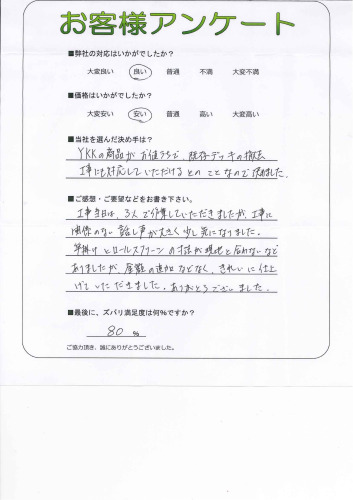 お客様アンケート
■弊社の対応はいかがでしたか？
大変良い 良い 普通 不満 大変不満
■価格はいかがでしたか？
大変安い 安い 普通 高い 大変高い
■当社を選んだ決め手は？
YKKの商品がお値うちで、既存デッキの撤去
工事にも対応していただけるとのことなので決めました。
■ご感想・ご要望などをお書き下さい。
工事当日は、3人で作業していただきましたが、工事に
関係のない話し声が大きく少し気になりました。
竿掛けとロールスクリーンの寸法が現地と合わないなど
ありましたが、金額の追加などなく、きれいに仕上
げていただきました。ありがとうございました。
■最後に、ズバリ満足度は何%ですか？
80 %
ご協力頂き、誠にありがとうございました。